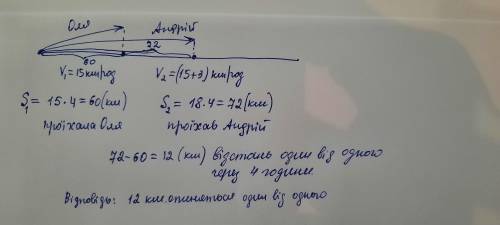 Оля Андрій
72
60
V₁ = 15 км/год V₂ = (15+3) км/год
S₁ = 15 · 4 = 60 (км) S₂ = 18 · 4 = 72 (км)
проїхала Оля проїхав Андрій
72 - 60 = 12 (км) відстань один від одного
через 4 години
Відповідь: 12 км. опиняться один від одного